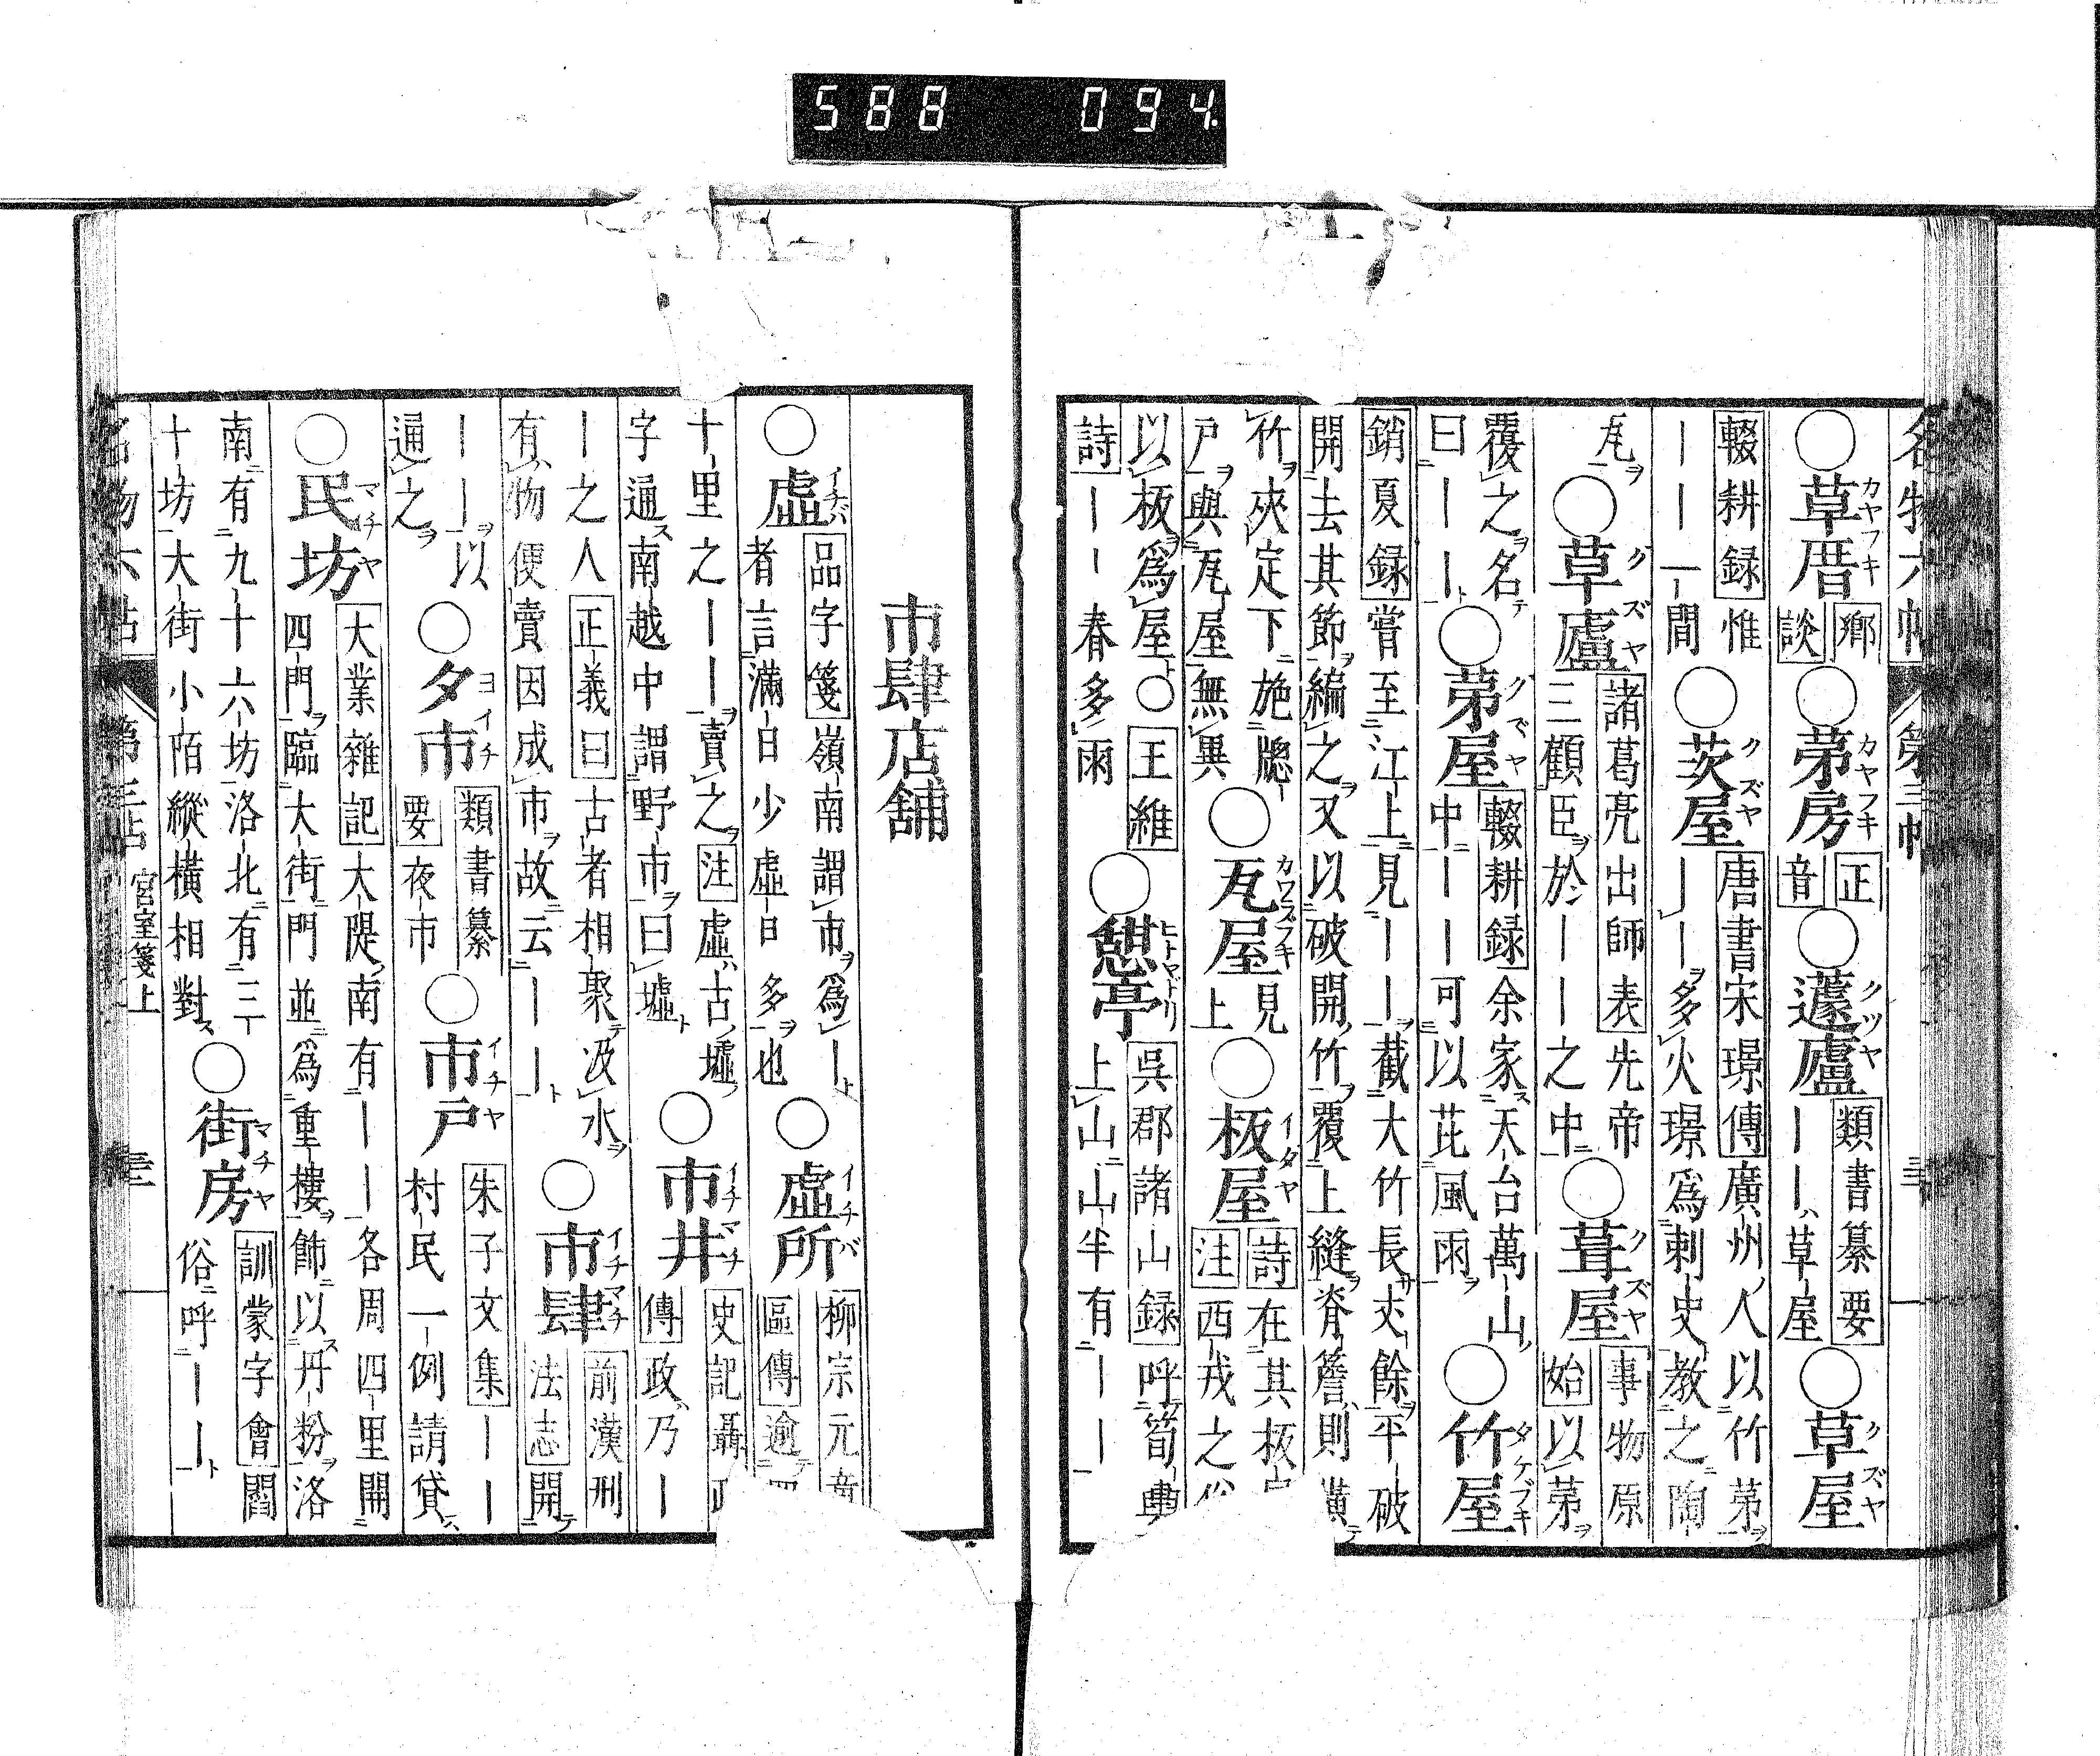 名物六帖 第三帖
○草厝 カヤフキ 鄉談 ○茅房 カヤフキ 正音 ○蘧廬 クツヤ 類書纂要 ――草屋 ○草屋 クズヤ
輟耕録惟
―――間 ○茨屋 クズヤ 唐書宋璟傳廣州人以竹茅
――多火璟爲刺史教之陶
瓦 ○草廬 クズヤ 諸葛亮出師表先帝
三顧臣於――之中 ○葺屋 クズヤ 事物原
始以茅
覆之名
曰―― ○茅屋 クズヤ 輟耕録余家天台萬山
中――可以芘風雨 ○竹屋 タケブキ
銷夏録嘗至江上見――截大竹長丈餘平破
開去其節編之又以破開竹覆上縫脊簷則横
竹夾定下施牕
戸與瓦屋無異 ○瓦屋 カワラフキ 見上 ○板屋 イタヤ 詩在其板
注西戎之俗
以板爲屋○王維
詩――春多雨 ○憇亭 ヒトヤドリ 呉郡諸山録呼筍輿
上山山半有――
市肆店舗
○虚 イチバ 品字箋嶺南謂市爲―
者言滿日少虚日多也 ○虚所 イチバ 柳宗元童
區傳逾四
十里之――賣之注虚古墟
字通南越中謂野市曰墟 ○市井 イチマチ 史記聶政
傳政乃―
―之人正義曰古者相聚汲水
有物便賣因成市故云―― ○市肆 イチマチ 前漢刑
法志開
――以
通之 ○夕市 ヨイチ 類書纂
要夜市 ○市戸 イチヤ 朱子文集――
村民一例請貸
○民坊 マチヤ 大業雜記大隄南有――各周四里開
四門臨大街門並爲重樓飾以丹粉洛
南有九十六坊洛北有三
十坊大街小陌縱横相對 ○街房 マチヤ 訓蒙字會閻
俗呼――
名物六帖 第三帖 宮室箋上
588 094